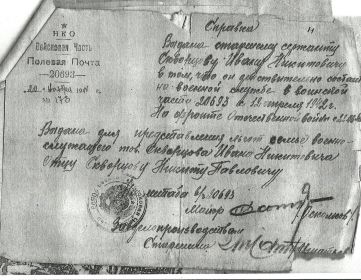 НКО
Войсковая Часть
Полевая Почта
-20693-
Справка
Выдана старшему сержанту
Скворцову Ивану Никитовичу
в том, что он действительно состоит
на военной службе в воинской
части 20693 с 12 апреля 1942 г.
На фронте Отечественной войны с
Выдана для представления льгот семье военно-
служащего тов. Скворцова Ивана Никитовича
Отцу Скворцову Никиту Павловичу
штаба в/ч 20693
Майор
Зав. делопроизводством